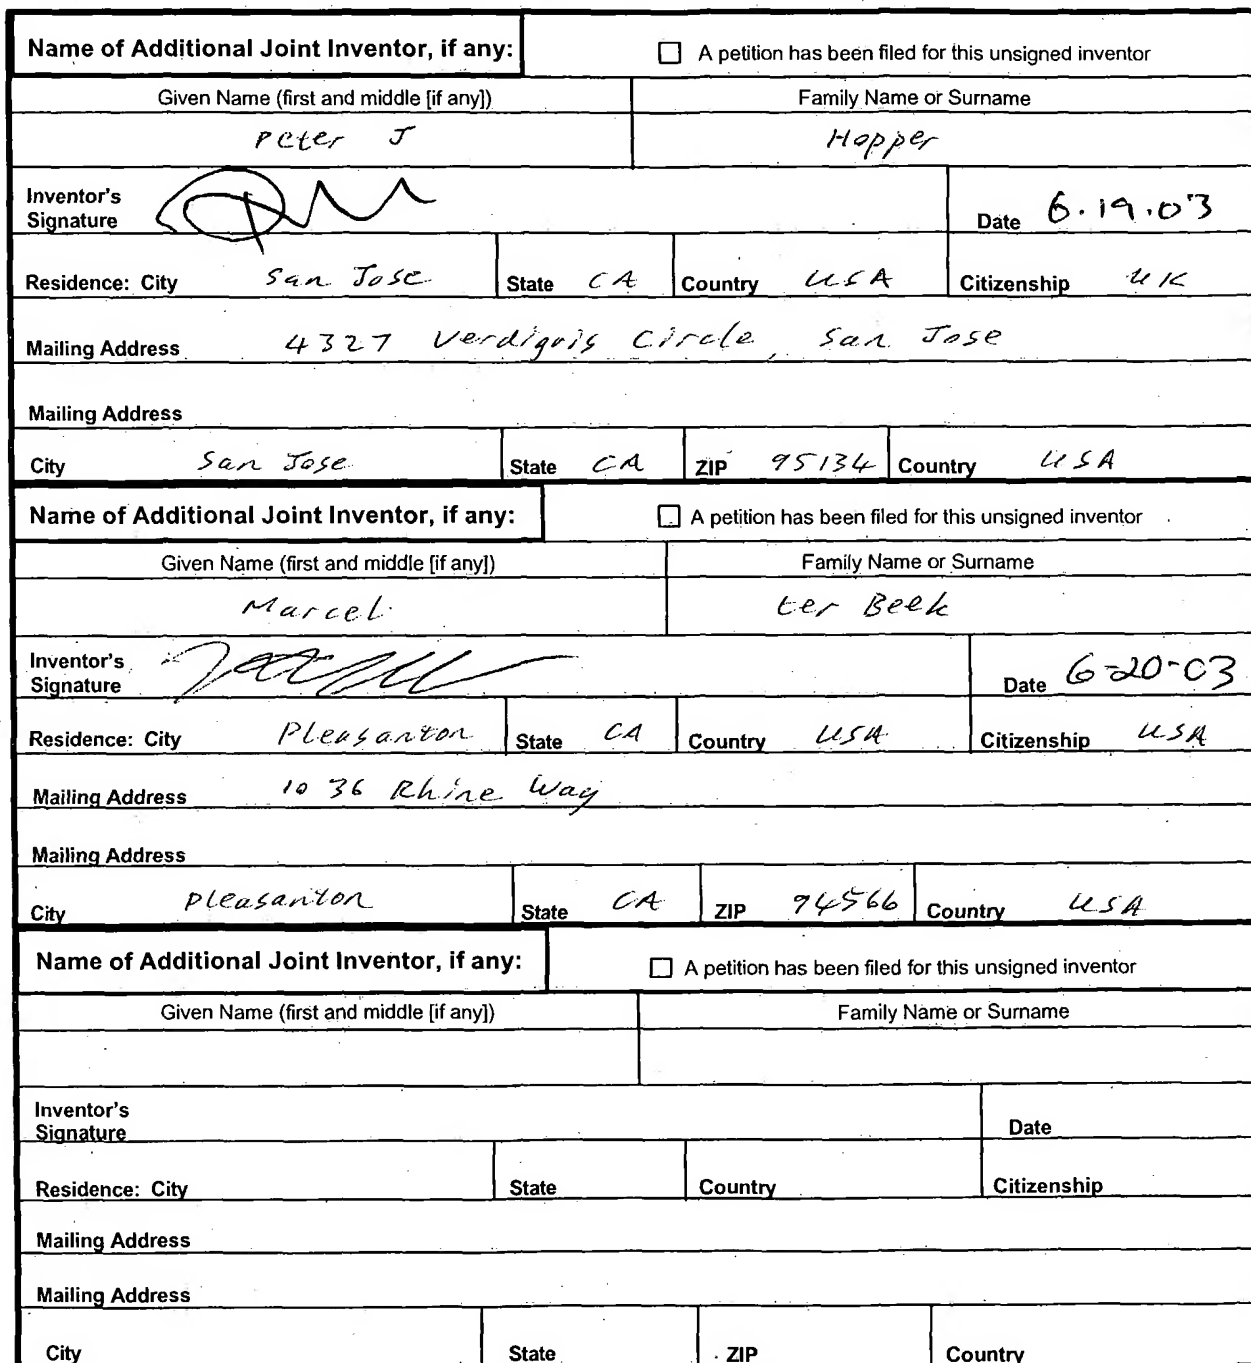 Name of Additional Joint Inventor, if any: ☐ A petition has been filed for this unsigned inventor
Given Name (first and middle [if any]) Family Name or Surname
Peter J Hopper
Inventor's
Signature Date 6.19.03
Residence: City San Jose State CA Country USA Citizenship UK
Mailing Address 4327 Verdigris Circle, San Jose
Mailing Address
City San Jose State CA ZIP 95134 Country USA
Name of Additional Joint Inventor, if any: ☐ A petition has been filed for this unsigned inventor
Given Name (first and middle [if any]) Family Name or Surname
Marcel ter Beek
Inventor's
Signature Date 6-20-03
Residence: City Pleasanton State CA Country USA Citizenship USA
Mailing Address 1036 Rhine Way
Mailing Address
City Pleasanton State CA ZIP 94566 Country USA
Name of Additional Joint Inventor, if any: ☐ A petition has been filed for this unsigned inventor
Given Name (first and middle [if any]) Family Name or Surname
Inventor's
Signature Date
Residence: City State Country Citizenship
Mailing Address
Mailing Address
City State ZIP Country